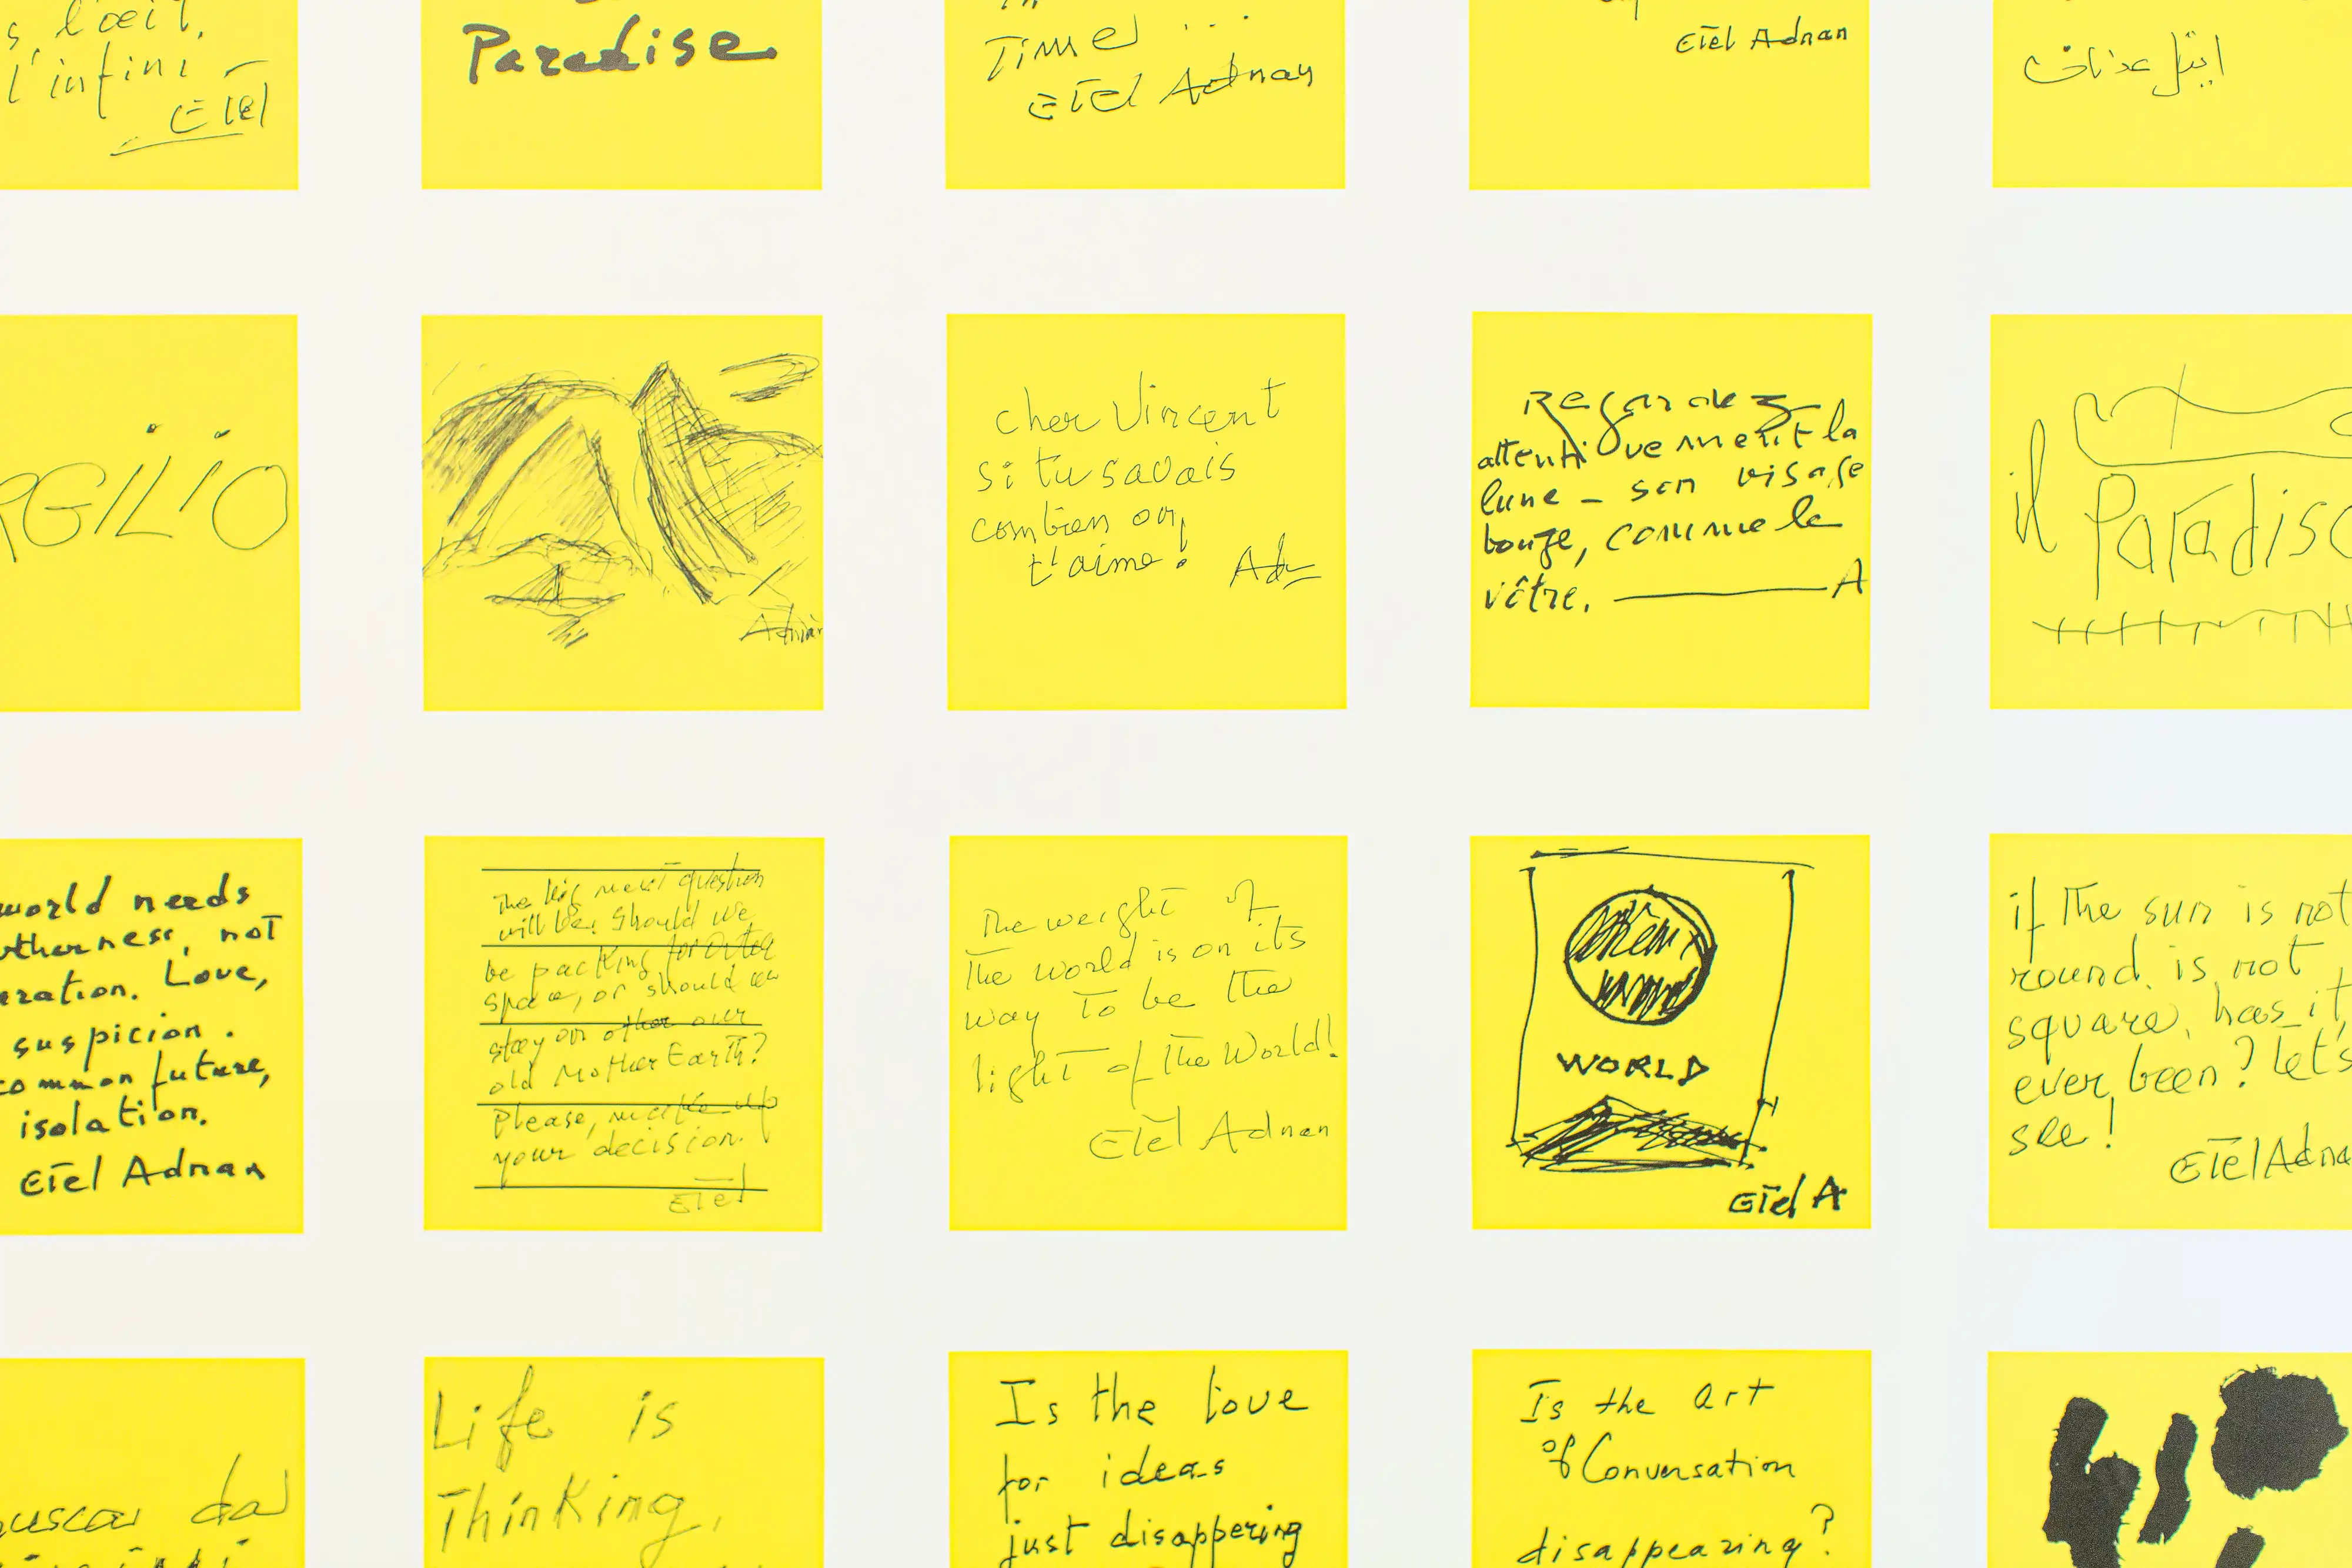 s, l'œil,
l'infini
Etel
Paradise
Time ...
Etel Adnan
Etel Adnan
ايتل عدنان
RGILIO
Adnan
cher Vincent
si tu savais
combien on
t'aime!
Ad
Regardez
attentivement la
lune – son visage
bouge, comme le
vôtre. A
il
Paradiso
world needs
otherness, not
eration. Love,
suspicion.
common future,
isolation.
Etel Adnan
The big next question
will be: should we
be packing for outer
space, or should we
stay on other our
old Mother Earth?
Please, make up
your decision.
Etel
The weight of
the world is on its
way to be the
light of the World!
Etel Adnan
WORLD
Etel A
if the sun is not
round, is not
square, has it
ever been? let's
see!
Etel Adna
uscar da
Life is
Thinking,
Is the love
for ideas
just disappering
Is the art
of Conversation
disappearing?